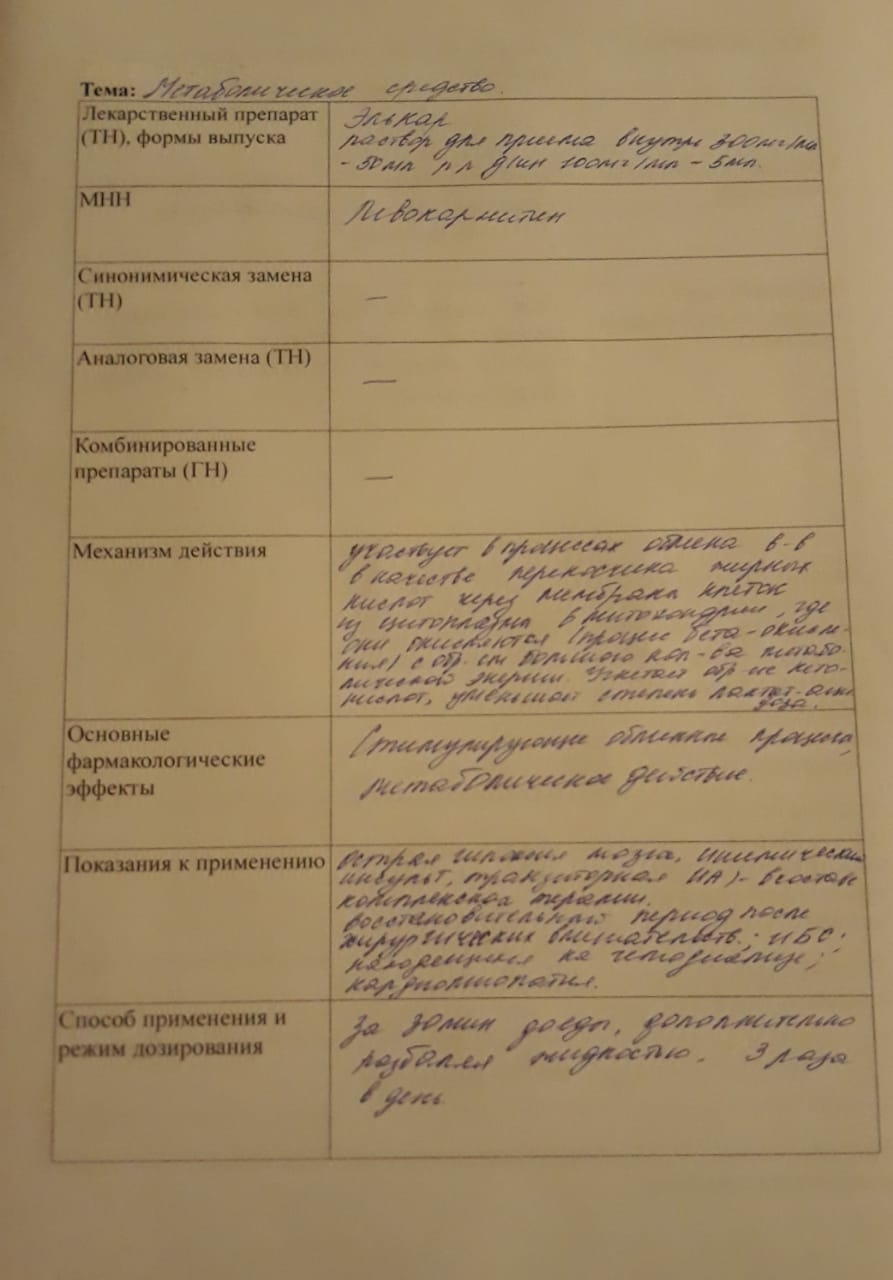 Тема: Метаболическое средство.
Лекарственный препарат
(ТН), формы выпуска
Элькар
раствор для приема внутрь 300мг/мл
- 50мл р-р д/ин 100мг/мл - 5мл.
МНН
Левокарнитин
Синонимическая замена
(ТН)
—
Аналоговая замена (ТН)
—
Комбинированные
препараты (ТН)
—
Механизм действия
участвует в процессах обмена в-в
в качестве переносчика жирных
кислот через мембраны клеток
из цитоплазмы в митохондрии, где
они окисляются (процесс бета-окисле-
ния) с обр. большого кол-ва метабо-
лической энергии. Угнетает обр-ие кето-
кислот, уменьшает степень лактат-аци
доза.
Основные
фармакологические
эффекты
Стимулирующие обменные процессы,
метаболическое действие.
Показания к применению
Острая гипоксия мозга, ишемический
инсульт, транзиторная ИА) - в состав
комплексной терапии.
восстановительный период после
хирургических вмешательств.; ИБС;
находящиеся на гемодиализе;
кардиомиопатия.
Способ применения и
режим дозирования
За 30мин до еды, дополнительно
разбавляя жидкостью. 3 раза
в день.